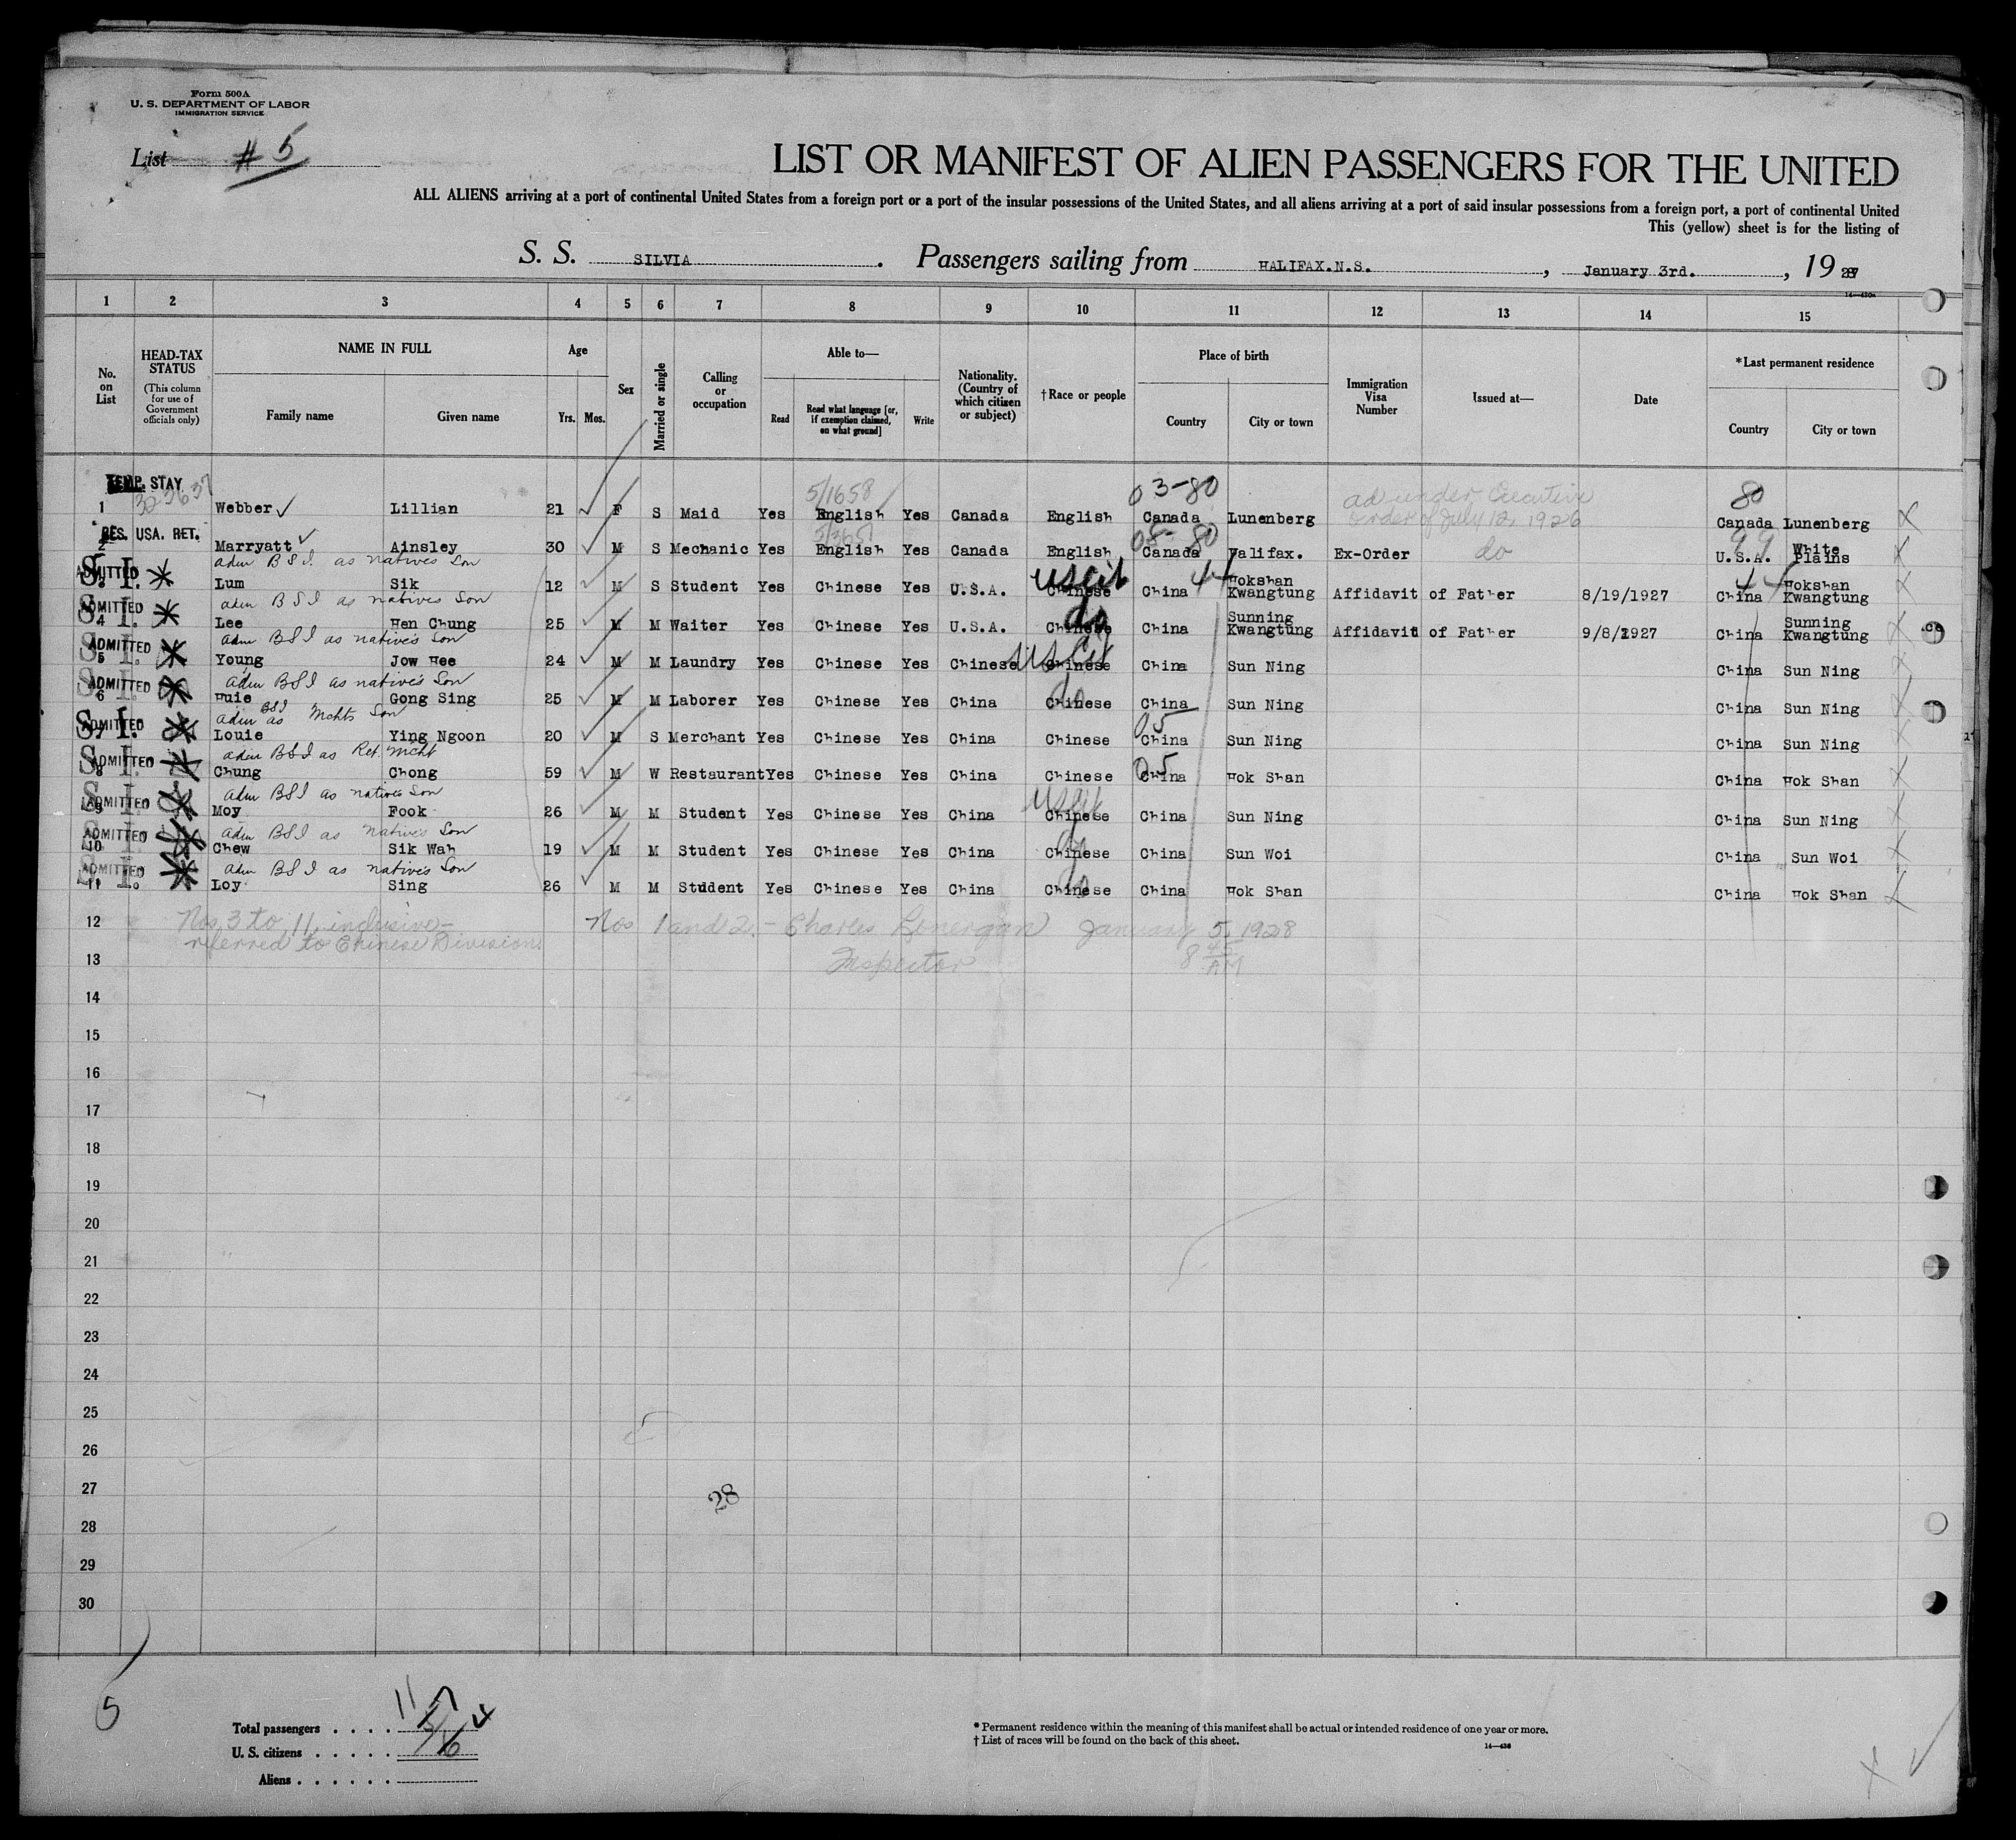 Form 500A
U. S. DEPARTMENT OF LABOR
IMMIGRATION SERVICE
List # 5
LIST OR MANIFEST OF ALIEN PASSENGERS FOR THE UNITED
ALL ALIENS arriving at a port of continental United States from a foreign port or a port of the insular possessions of the United States, and all aliens arriving at a port of said insular possessions from a foreign port, a port of continental United
This (yellow) sheet is for the listing of
S. S. SILVIA. Passengers sailing from HALIFAX.N.S., January 3rd., 19
1 2 3 4 5 6 7 8 9 10 11 12 13 14 15
No. on List
HEAD-TAX STATUS
(This column for use of Government officials only)
NAME IN FULL
Family name Given name
Age
Yrs. Mos.
Sex
Married or single
Calling or occupation
Able to—
Read
Read what language [or, if exemption claimed, on what ground]
Write
Nationality. (Country of which citizen or subject)
†Race or people
Place of birth
Country City or town
Immigration Visa Number
Issued at—
Date
*Last permanent residence
Country City or town
TEMP. STAY 5/1658 03-80 ad under Executive 80
1 Webber ✓ Lillian 21 F S Maid Yes English Yes Canada English Canada Lunenberg order of July 12, 1926 Canada Lunenberg
RES. USA. RET. 08- 80 99
2 Marryatt ✓ Ainsley 30 M S Mechanic Yes English Yes Canada English Canada Halifax. Ex-Order do U.S.A. White Plains
ADMITTED S. I. adm B S I. as natives Son US Cit 44 44
Lum Sik 12 M S Student Yes Chinese Yes U.S.A. Chinese China Hokshan Kwangtung Affidavit of Father 8/19/1927 China Hokshan Kwangtung
ADMITTED S. I. adm B S I as natives Son do
4 Lee Hen Chung 25 M M Waiter Yes Chinese Yes U.S.A. Chinese China Sunning Kwangtung Affidavit of Father 9/8/1927 China Sunning Kwangtung
ADMITTED S. I. adm BSI as native's Son US Cit
5 Young Jow Hee 24 M M Laundry Yes Chinese Yes Chinese Chinese China Sun Ning China Sun Ning
ADMITTED S. I. adm BSI as natives Son do
6 Huie Gong Sing 25 M M Laborer Yes Chinese Yes China Chinese China Sun Ning China Sun Ning
ADMITTED S. I. adm BSI as Mchts Son 05
Louie Ying Ngoon 20 M S Merchant Yes Chinese Yes China Chinese China Sun Ning China Sun Ning
ADMITTED S. I. adm BSI as Ret. Mcht 05
8 Chung Chong 59 M W Restaurant Yes Chinese Yes China Chinese China Hok Shan China Hok Shan
ADMITTED S. I. adm BSI as natives Son US Cit
9 Moy Fook 26 M M Student Yes Chinese Yes China Chinese China Sun Ning China Sun Ning
ADMITTED S. I. adm BSI as natives Son
10 Chew Sik Wah 19 M M Student Yes Chinese Yes China Chinese China Sun Woi China Sun Woi
ADMITTED S. I. adm BSI as natives Son do
11 Loy Sing 26 M M Student Yes Chinese Yes China Chinese China Hok Shan China Hok Shan
12 Nos. 3 to 11 inclusive— Nos 1 and 2.- Charles Lonergan January 5, 1928
referred to Chinese Division
13 Inspector 8 45 AM
14
15
16
17
18
19
20
21
22
23
24
25
26
27
28
28
29
30
5
Total passengers . . . . 11
U. S. citizens . . . . .
Aliens . . . . . .
* Permanent residence within the meaning of this manifest shall be actual or intended residence of one year or more.
† List of races will be found on the back of this sheet.